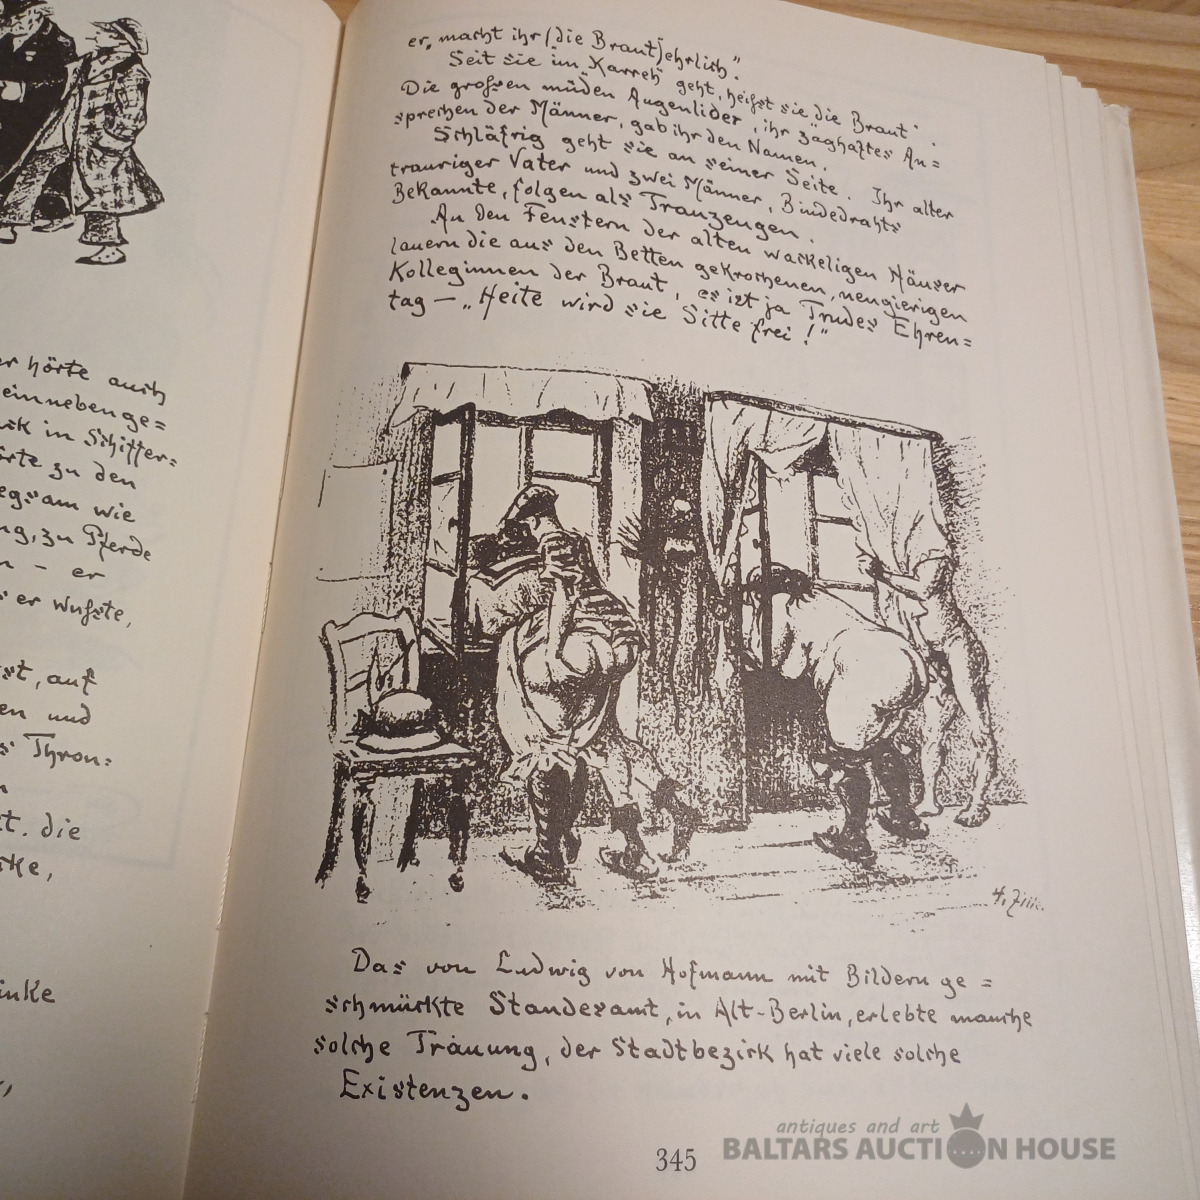 er hörte auch
einnebenge=
in Schiffer=
zu den
wie
zu Pferde
– er
er wußte,
auf
und
Thron=
die
er, macht ihr (die Braut) ehrlich".
Seit sie im „Karreh" geht, heißt sie die „Braut".
Die großen müden Augenlider, ihr zaghaftes An=
sprechen der Männer, gab ihr den Namen.
Schläfrig geht sie an seiner Seite. Ihr alter
trauriger Vater und zwei Männer, Bindedrahts
Bekannte, folgen als Trauzeugen.
An den Fenstern der alten wackeligen Häuser
lauern die aus den Betten gekrochenen, neugierigen
Kolleginnen der Braut, es ist ja Trudes Ehren=
tag – „Heite wird sie Sitte frei!"
H. Zille.
Das von Ludwig von Hofmann mit Bildern ge=
schmückte Standesamt, in Alt-Berlin, erlebte manche
solche Trauung, der Stadtbezirk hat viele solche
Existenzen.
345
antiques and art
BALTARS AUCTION HOUSE